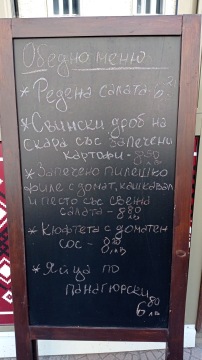 Обедно меню
* Редена салата - 6²
* Свински дроб на
скара със запечени
картофи - 8.50 лв
* Запечено пилешко
филе с домат, кашкавал
и песто със свежа
салата - 8.80 лв
* Кюфтета с доматен
сос - 8 лв
* Яйца по
панагюрски
6.80 лв